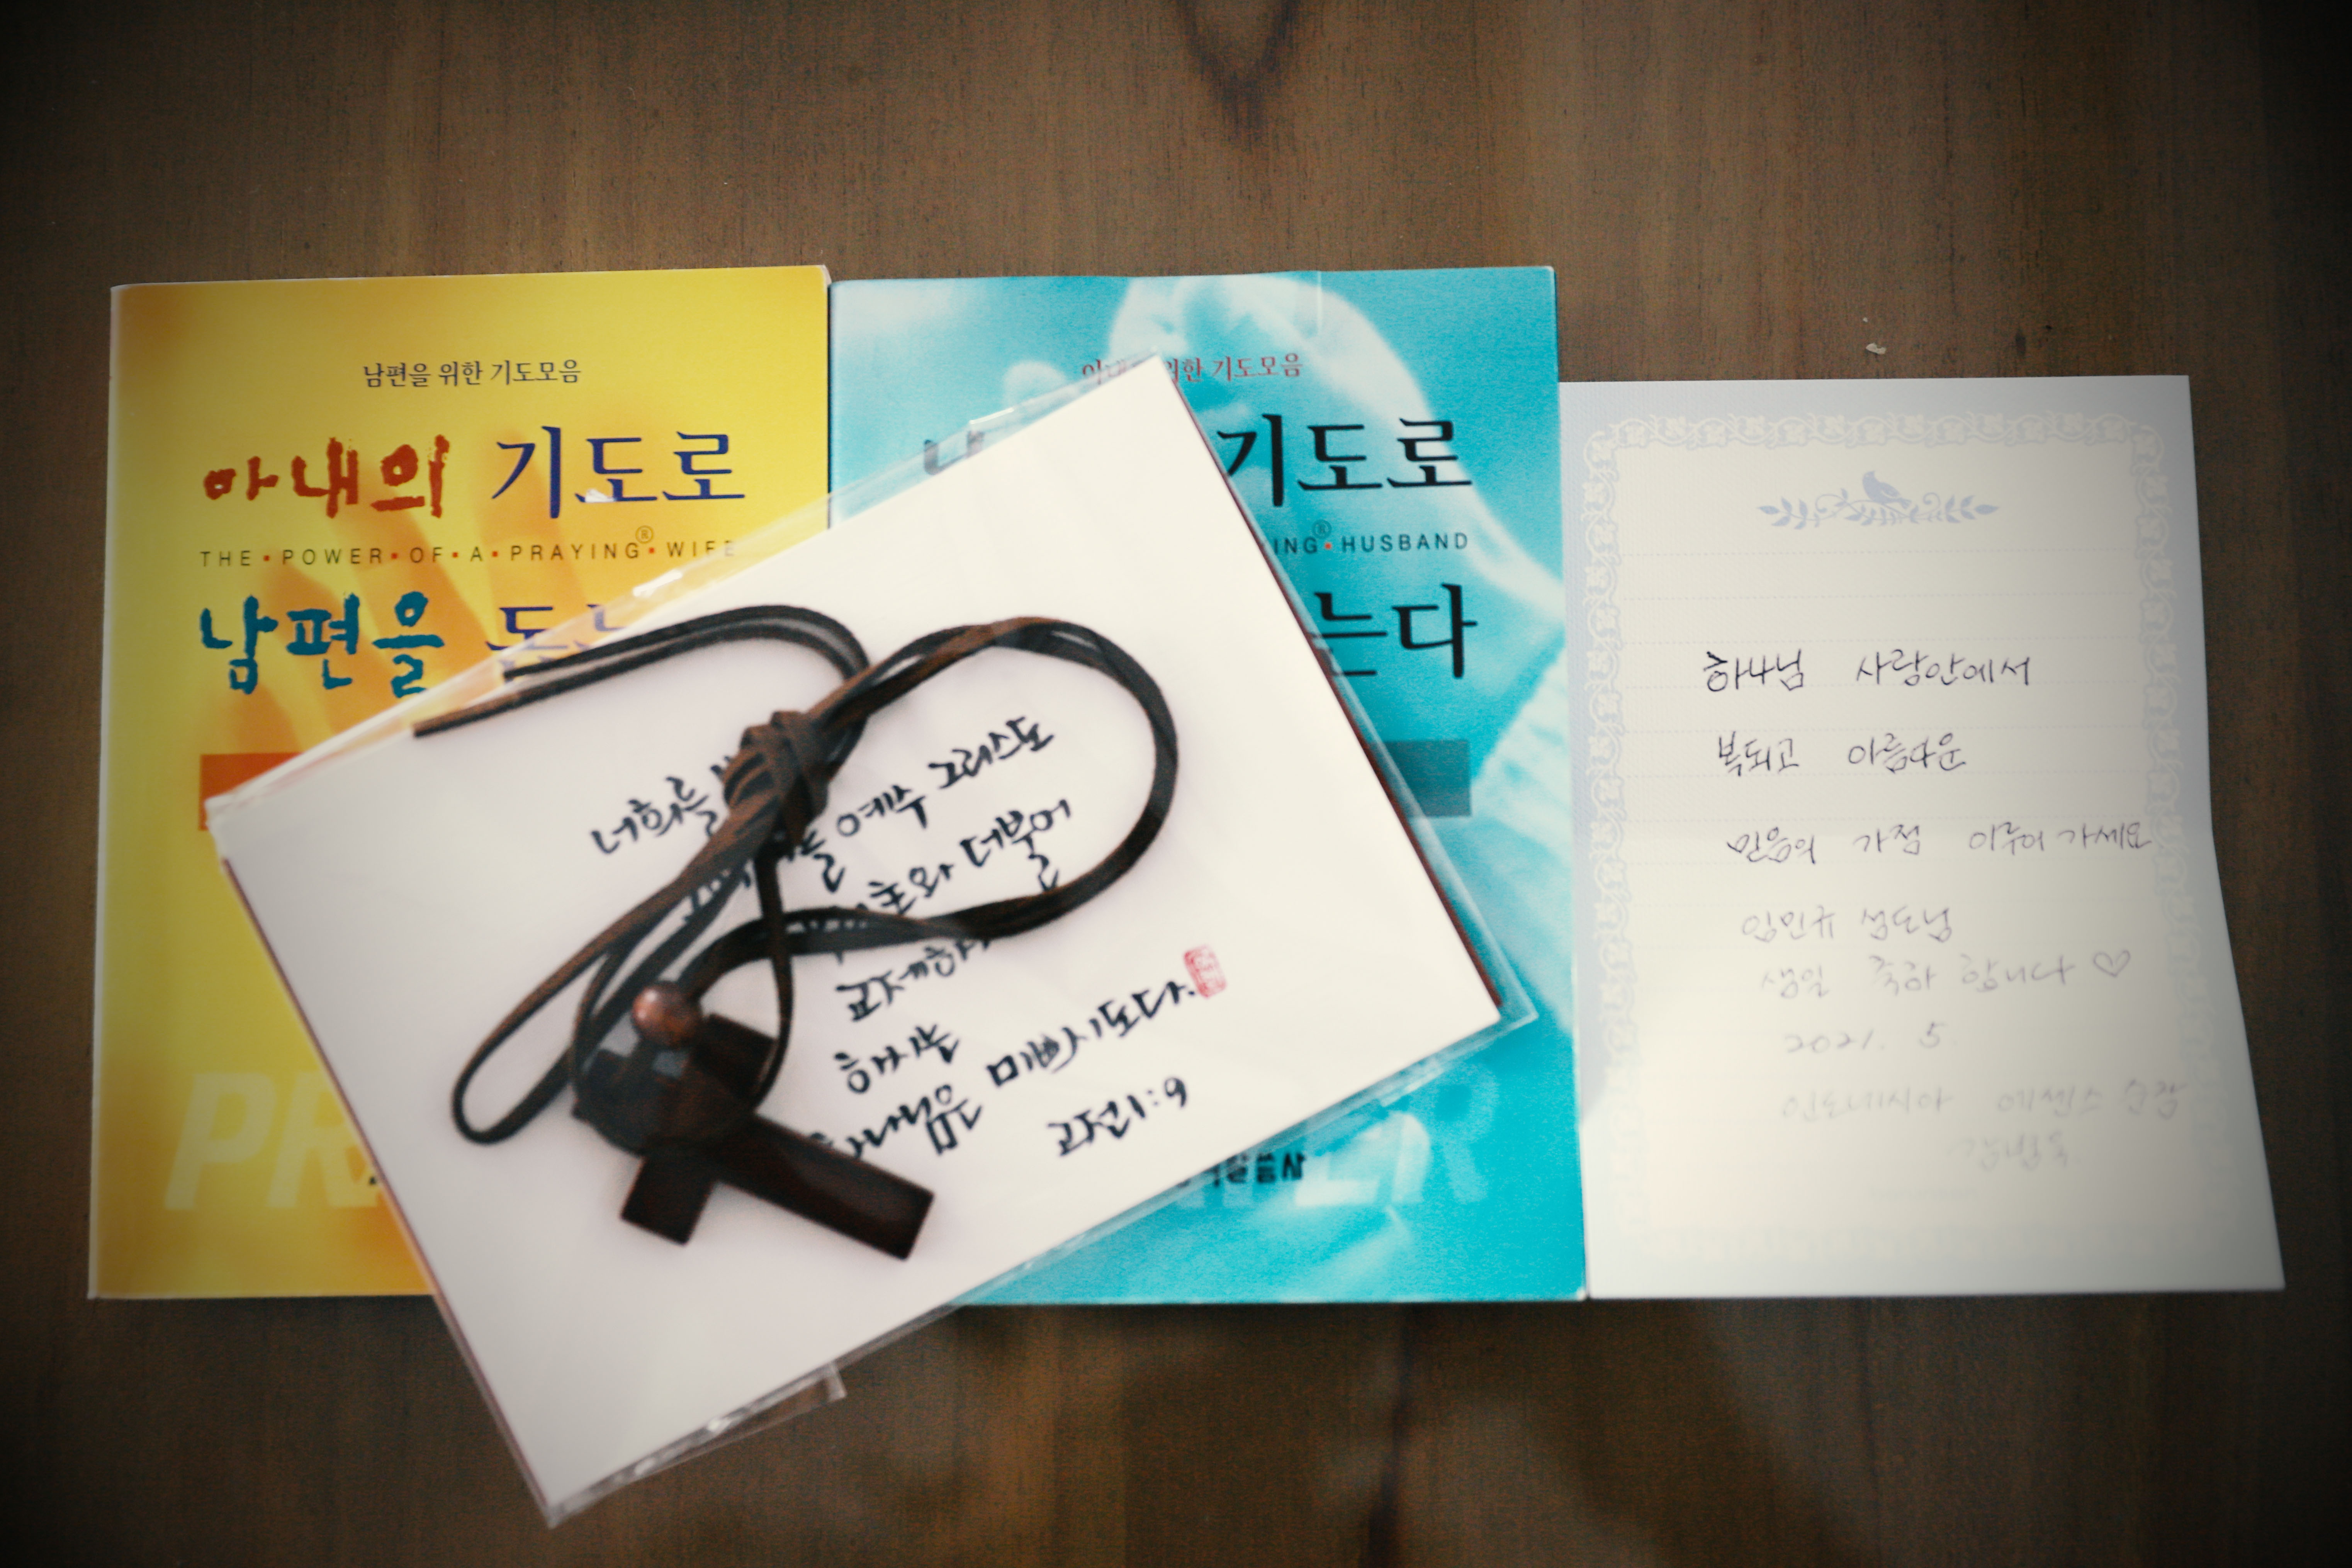 남편을 위한 기도모음
아내의 기도로
THE•POWER•OF•A•PRAYING®•WIFE
남편을
위한 기도모음
기도로
ING®•HUSBAND
는다
너희를 예수 그리스도
더불어
교제하
하시는
미쁘시도다.
고전1:9
하나님 사랑안에서
복되고 아름다운
믿음의 가정 이루어 가세요
임민규 성도님
생일 축하 합니다 ♡
2021. 5.
인도네시아 에센스 순장